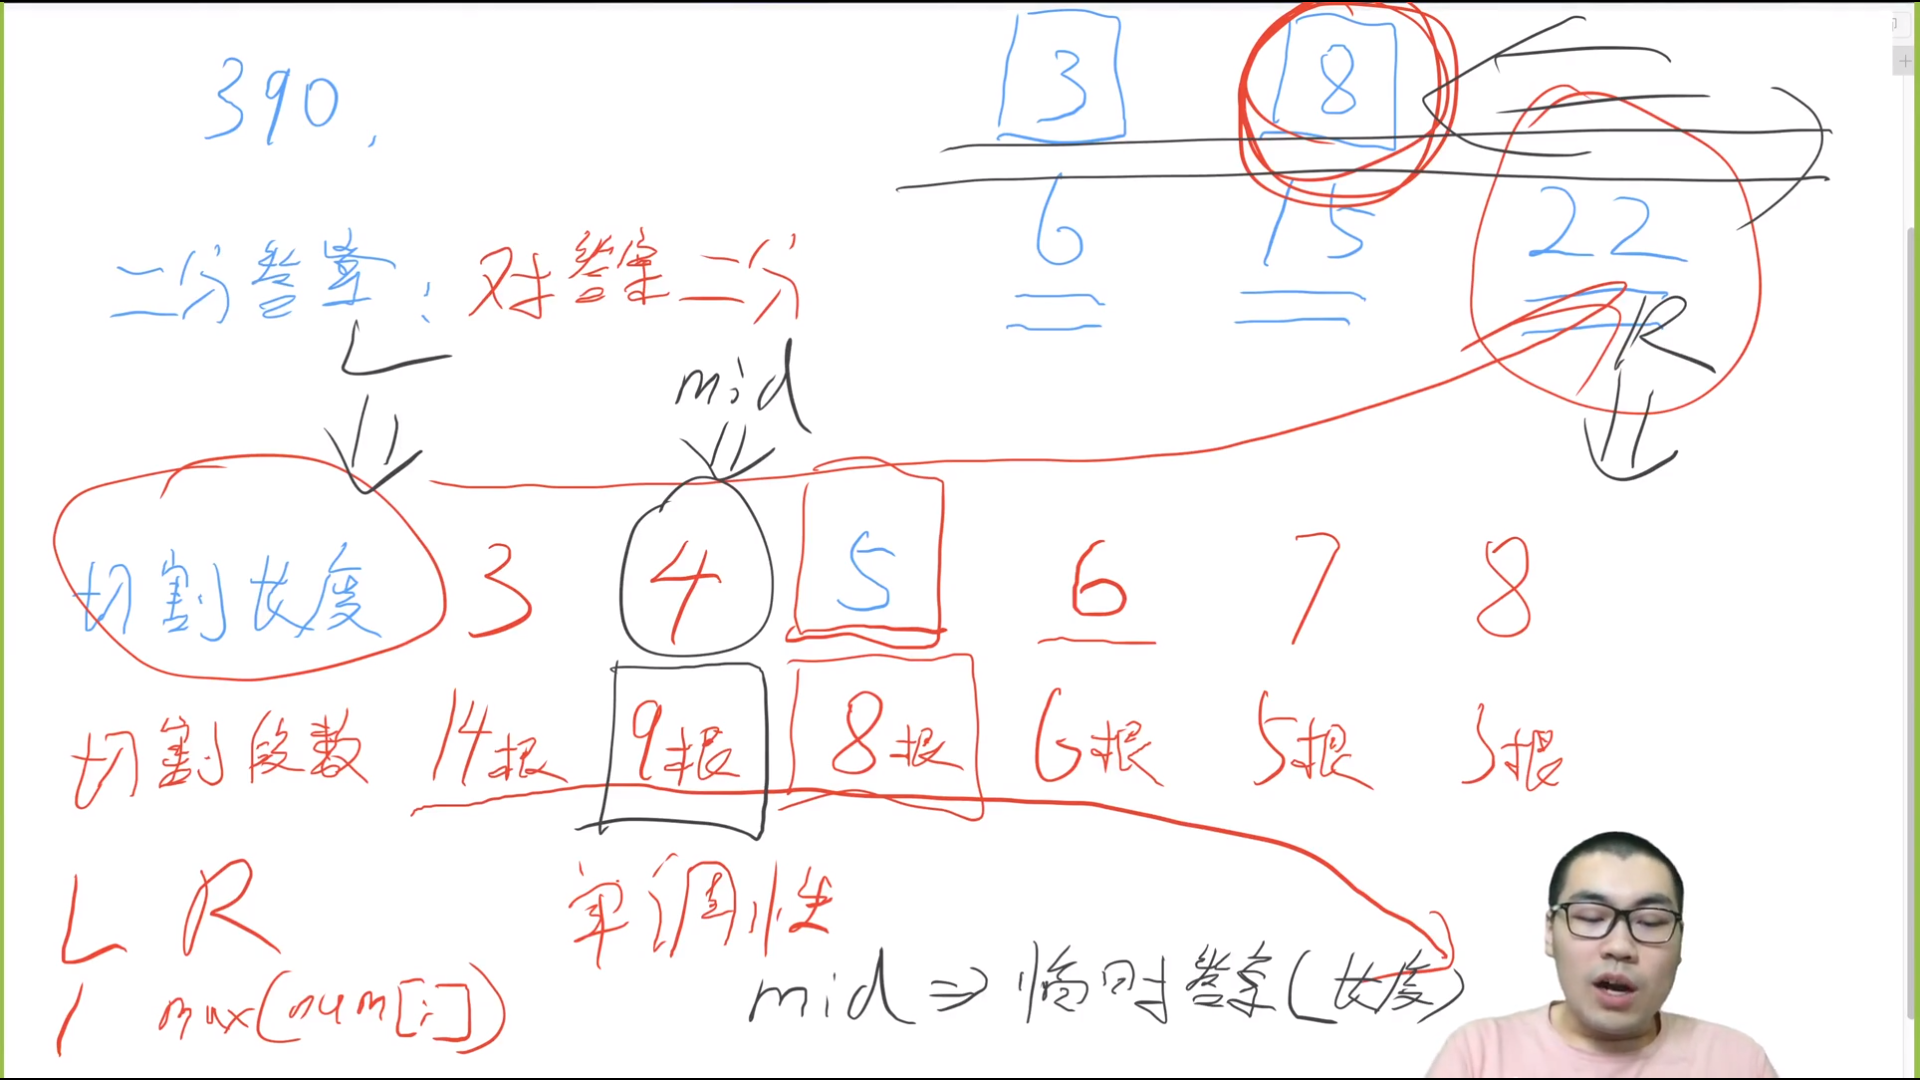 3 8
390,
6 15 22
二分答案: 对答案二分
L mid R
切割长度 3 4 5 6 7 8
切割段数 14根 9根 8根 6根 5根 3根
L R 单调性
1 max(num[i])
mid => 临时答案(长度)